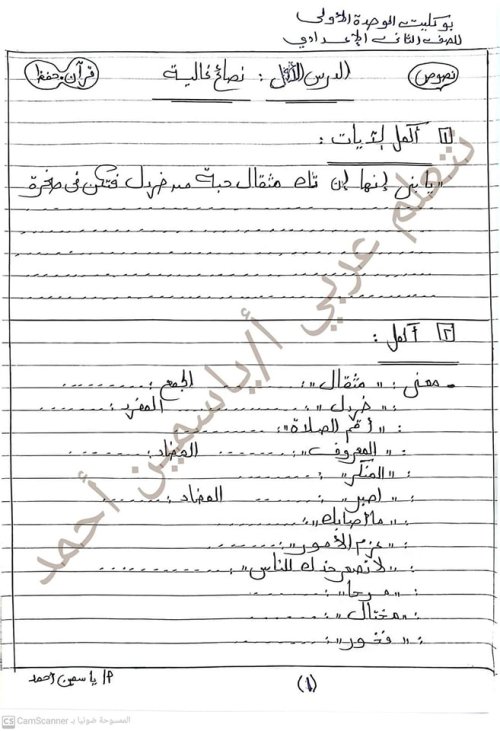 بوكليت الوحدة الأولى
للصف الثانى الإعدادي
نصوص
الدرس الأول : نصائح غالية
قرآن . حفظ
١ أكمل الآيات :
"يا بنى إنها إن تك مثقال حبة من خردل فتكن فى صخرة
٢ أكمل :
معنى : "مثقال" : .......... الجمع : ..........
: "خردل" : .......... المفرد : ..........
: "أقم الصلاة" : ..........
: "المعروف" : .......... المضاد : ..........
: "المنكر" : ..........
: "اصبر" : .......... المضاد : ..........
: "ما أصابك" : ..........
: "عزم الأمور" : ..........
: "لا تصعر خدك للناس" : ..........
: "مرحا" : ..........
: "مختال" : ..........
: "فخور" : ..........
نتعلم عربي أ/ياسمين أحمد
(١)
أ/ ياسمين أحمد
الممسوحة ضوئيا بـ CamScanner
CS